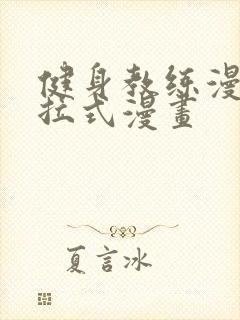 健身教练漫
拉式漫畫
夏言冰